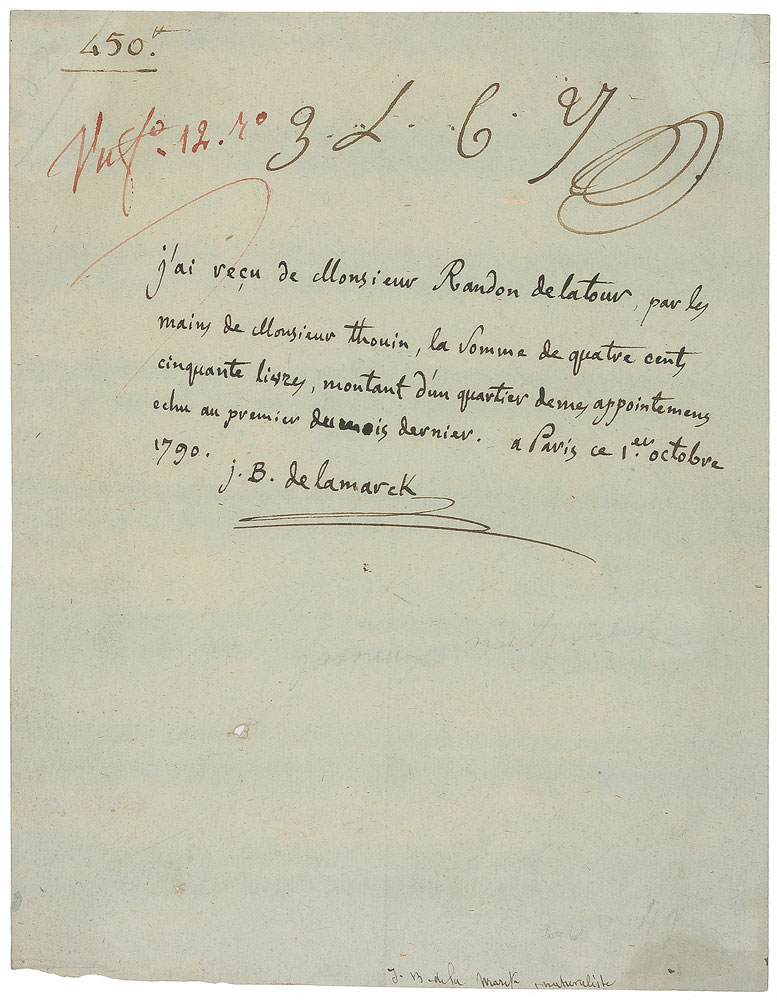 450.ᵗᵗ
Vu fº. 12. rº 3. L. C. Y
j'ai reçu de Monsieur Randon delatour, par les
mains de Monsieur thouin, la somme de quatre cents
cinquante livres, montant d'un quartier demes appointemens
echu au premier dumois dernier. a Paris ce 1.er octobre
1790.
j. B. delamarck
J. B. de la Marck naturaliste